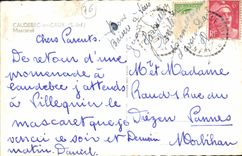 76
CAUDEBEC-en-CAUX (S.-Inf.)
Mascaret
Chers Parents.
De retour d'une
promenade à
Caudebec j'attends
à Villequier le
mascaret que je
verrai ce soir et Demain
matin. Daniel
Mr et Madame
Rue
Vannes
Morbihan